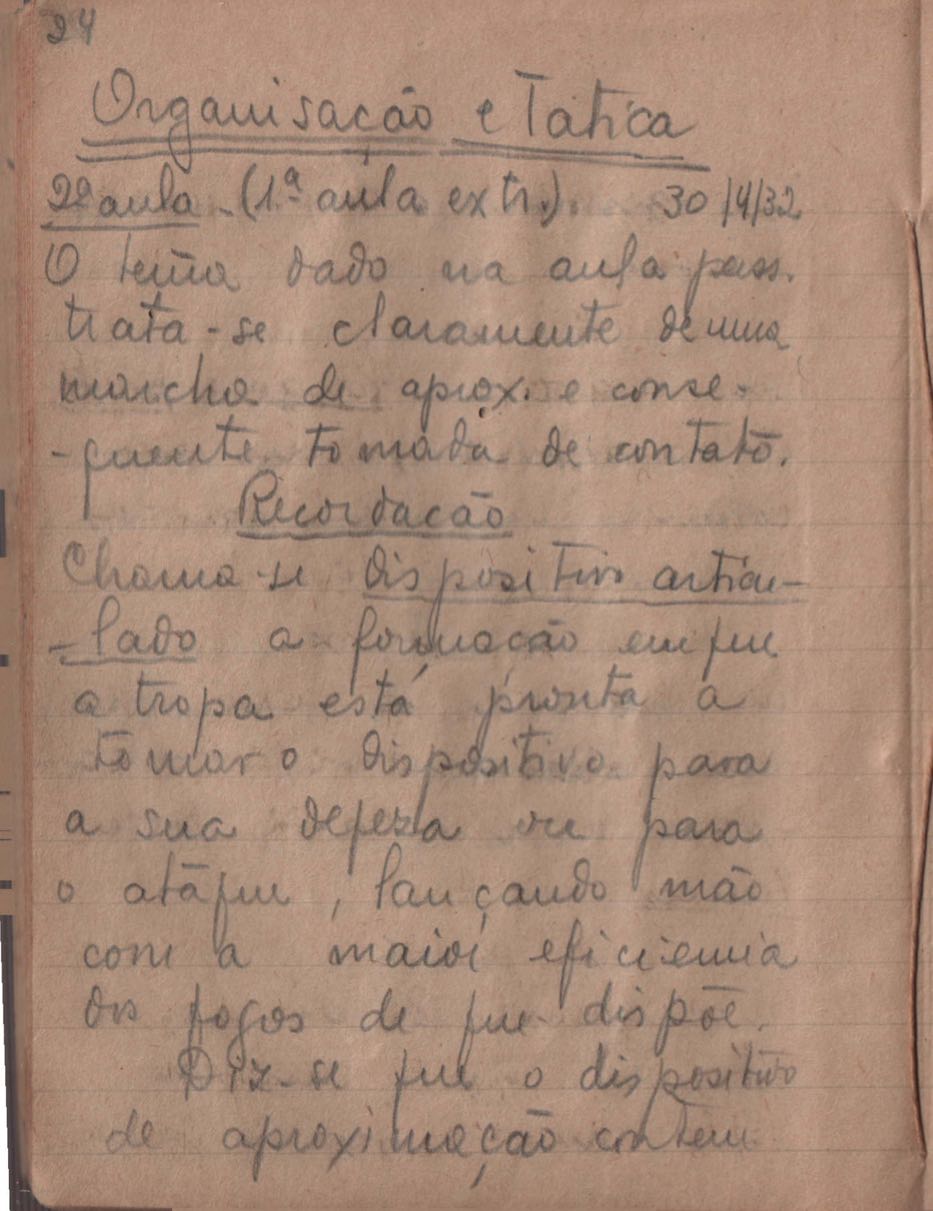 24
Organisação e Tatica
2ª aula - (1ª aula extr.) 30/4/32
O tema dado na aula pass.
trata-se claramente de uma
marcha de aprox. e conse-
-quente tomada de contato.
Recordação
Chama-se dispositivo articu-
-lado a formação em que
a tropa está pronta a
tomar o dispositivo para
a sua defeza ou para
o atáque, lançando mão
com a maior eficiencia
dos fogos de que dispõe.
Diz-se que o dispositivo
de aproximação contem